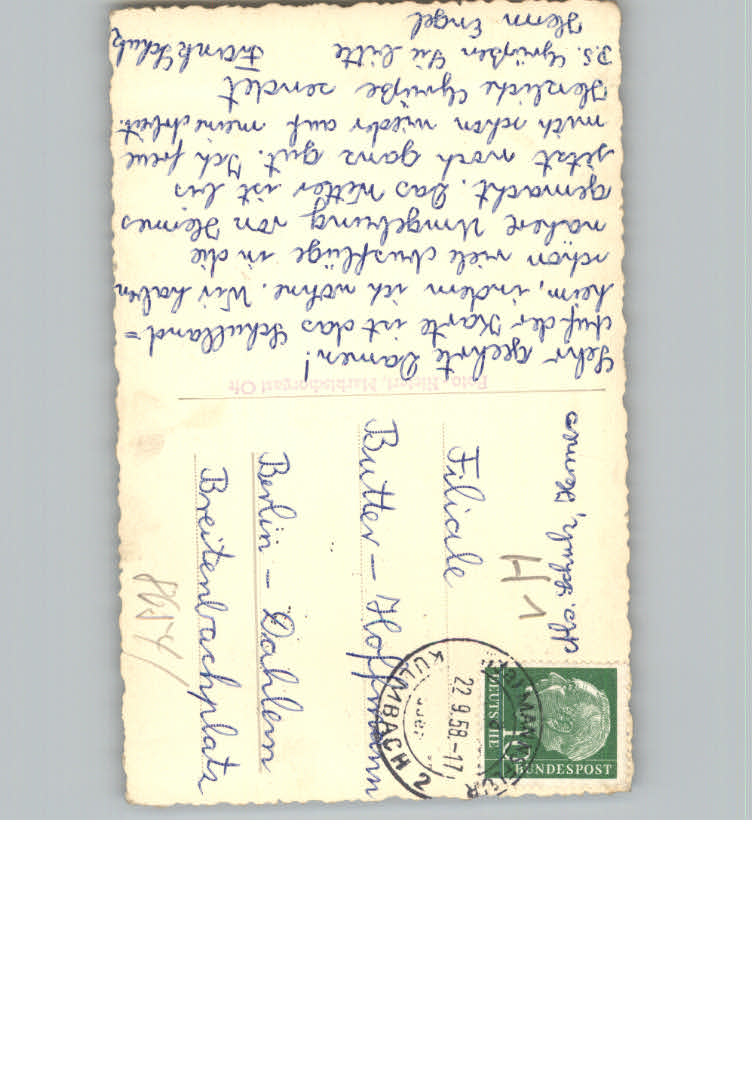 Sehr geehrte Damen!
Auf der Karte ist das Schulland=
heim, indem ich wohne. Wir haben
schon viele Ausflüge in die
nähere Umgebung von Heimes
gemacht. Das Wetter ist bis
jetzt noch ganz gut. Ich freue
mich schon wieder auf meine Arbeit.
Herzliche Grüße sendet
Frank Schulz
P.S. Grüßen Sie bitte
Herrn Engel
Marktschorgast Ofr
H1
Filiale
Butter – Hoffmann
Berlin – Dahlem
Breitenbachplatz
KULMBACH 2
22.9.58.-17
DEUTSCHE
BUNDESPOST
10